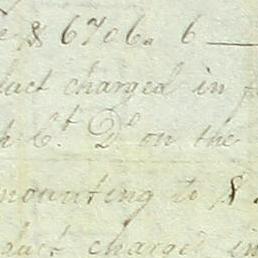 $ 6706. 6
duct charged in f
h Ct. Do on the
mounting to $
duct charged in